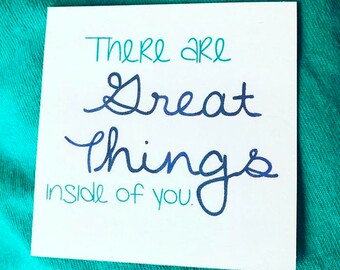 There are
Great
Things
inside of you.